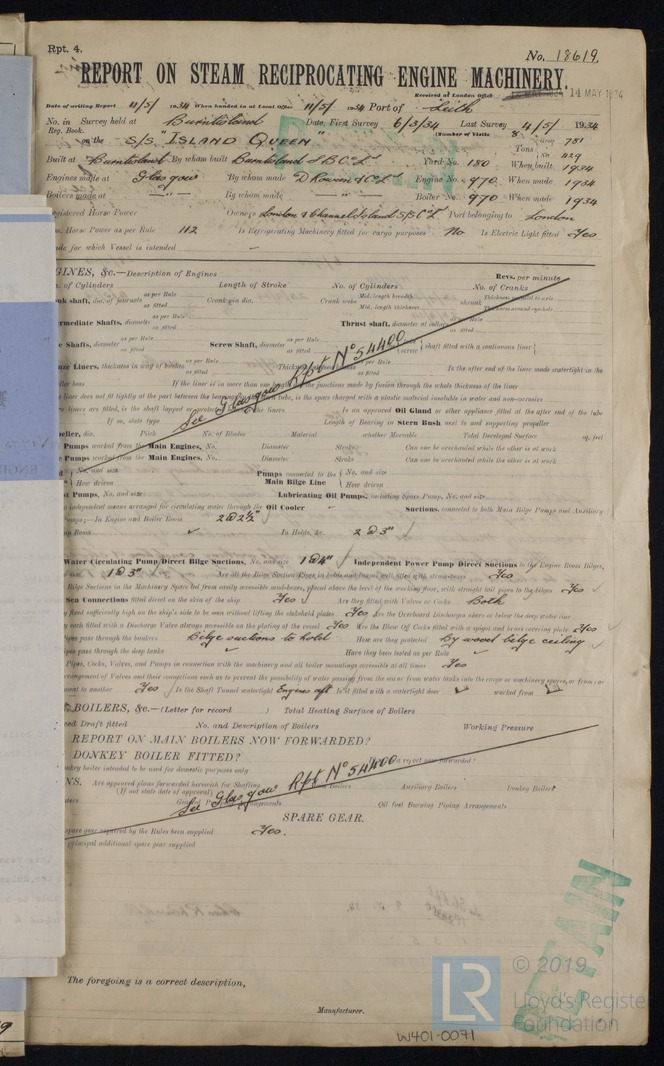 Rpt. 4.
No. 18619.
REPORT ON STEAM RECIPROCATING ENGINE MACHINERY.
Received at London Office 14 MAY 1934
Date of writing Report 11/5/ 1934 When handed in at Local Office 11/5/ 1934 Port of Leith
No. in Survey held at Burntisland Date, First Survey 6/3/34 Last Survey 4/5/ 1934
Reg. Book. (Number of Visits 8
on the S/S "ISLAND QUEEN" Tons Gross 781
Net 429
Built at Burntisland By whom built Burntisland S B Co Ld Yard No. 180 When built 1934
Engines made at Glasgow By whom made D Rowan & Co Ld Engine No. 970 When made 1934
Boilers made at —"— By whom made —"— Boiler No. 970 When made 1934
Registered Horse Power Owners London & Channel Island S/S Co Ld Port belonging to London
Horse Power as per Rule 112 Is Refrigerating Machinery fitted for cargo purposes No Is Electric Light fitted Yes
for which Vessel is intended
GINES, &c.—Description of Engines Revs. per minute
of Cylinders Length of Stroke No. of Cylinders No. of Cranks
shaft, dia. of journals as per Rule as fitted Crank pin dia. Crank webs Mid. length breadth Mid. length thickness shrunk Thickness parallel to axis Thickness around eyehole
Intermediate Shafts, diameter as per Rule as fitted Thrust shaft, diameter at collars as per Rule as fitted
Shafts, diameter as per Rule as fitted Screw Shaft, diameter as per Rule as fitted screw shaft fitted with a continuous liner
See Glasgow Rpt No 54400
Liners, thickness in way of bushes as per Rule as fitted Is the after end of the liner made watertight in the
boss If the liner is in more than one length are the junctions made by fusion through the whole thickness of the liner
liner does not fit tightly at the part between the bearings in the stern tube, is the space charged with a plastic material insoluble in water and non-corrosive
liners are fitted, is the shaft lapped or protected between the liners Is an approved Oil Gland or other appliance fitted at the after end of the tube
If so, state type Length of Bearing in Stern Bush next to and supporting propeller
peller, dia. Pitch No. of Blades Material whether Moveable Total Developed Surface sq. feet
Pumps worked from the Main Engines, No. Diameter Stroke Can one be overhauled while the other is at work
Pumps worked from the Main Engines, No. Diameter Stroke Can one be overhauled while the other is at work
No. and size Pumps connected to the Main Bilge Line No. and size
How driven How driven
Pumps, No. and size Lubricating Oil Pumps, including Spare Pump, No. and size
independent means arranged for circulating water through the Oil Cooler Suctions, connected to both Main Bilge Pumps and Auxiliary
Pumps;—In Engine and Boiler Room 2 @ 2½"
Room In Holds, &c. 2 @ 3"
Water Circulating Pump Direct Bilge Suctions, No. and size 1 @ 4" Independent Power Pump Direct Suctions to the Engine Room Bilges,
1 @ 3" Are all the Bilge Suction Pipes in holds and tunnel well fitted with strum-boxes Yes
Bilge Suctions in the Machinery Space led from easily accessible mud-boxes, placed above the level of the working floor, with straight tail pipes to the bilges Yes
Sea Connections fitted direct on the skin of the ship Yes Are they fitted with Valves or Cocks Both
fixed sufficiently high on the ship's side to be seen without lifting the stokehold plates Yes Are the Overboard Discharges above or below the deep water line
each fitted with a Discharge Valve always accessible on the plating of the vessel Yes Are the Blow Off Cocks fitted with a spigot and brass covering plate Yes
pipes pass through the bunkers Bilge suctions to hold How are they protected By wood bilge ceiling
pipes pass through the deep tanks Have they been tested as per Rule
Pipes, Cocks, Valves, and Pumps in connection with the machinery and all boiler mountings accessible at all times Yes
arrangement of Valves and their connections such as to prevent the possibility of water passing from the sea or from water tanks into the cargo or machinery spaces, or from
ment to another Yes Is the Shaft Tunnel watertight Engines aft Is it fitted with a watertight door worked from
BOILERS, &c.—(Letter for record ) Total Heating Surface of Boilers
Draft fitted No. and Description of Boilers Working Pressure
REPORT ON MAIN BOILERS NOW FORWARDED?
DONKEY BOILER FITTED? a report now forwarded?
boiler intended to be used for domestic purposes only
NS. Are approved plans forwarded herewith for Shafting Boilers Auxiliary Boilers Donkey Boilers
(If not state date of approval)
See Glasgow Rpt No 54400
Oil fuel Burning Piping Arrangements
SPARE GEAR.
spare gear required by the Rules been supplied Yes.
principal additional spare gear supplied
RETAIN
The foregoing is a correct description,
Manufacturer.
LR © 2019
Lloyd's Register
Foundation
W401-0071